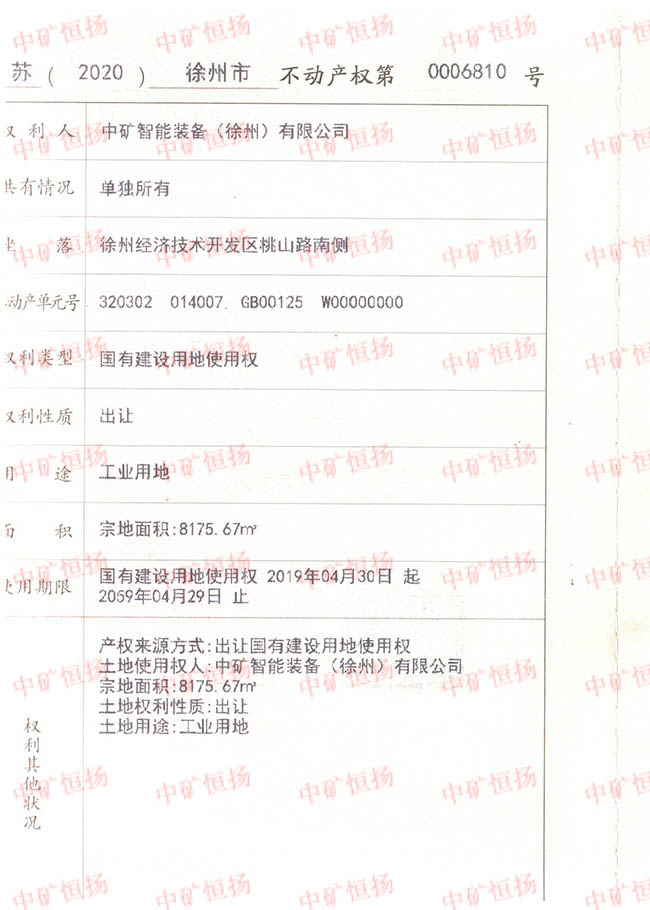 中矿恒扬 中矿恒扬 中矿恒扬 中矿恒扬 中矿恒扬
苏 ( 2020 ) 徐州市 不动产权第 0006810 号
权利人 中矿智能装备（徐州）有限公司
共有情况 单独所有
坐落 徐州经济技术开发区桃山路南侧
动产单元号 320302 014007 GB00125 W00000000
权利类型 国有建设用地使用权
权利性质 出让
用途 工业用地
面积 宗地面积:8175.67㎡
使用期限 国有建设用地使用权 2019年04月30日 起
2069年04月29日 止
权利其他状况
产权来源方式:出让国有建设用地使用权
土地使用权人:中矿智能装备（徐州）有限公司
宗地面积:8175.67㎡
土地权利性质:出让
土地用途:工业用地